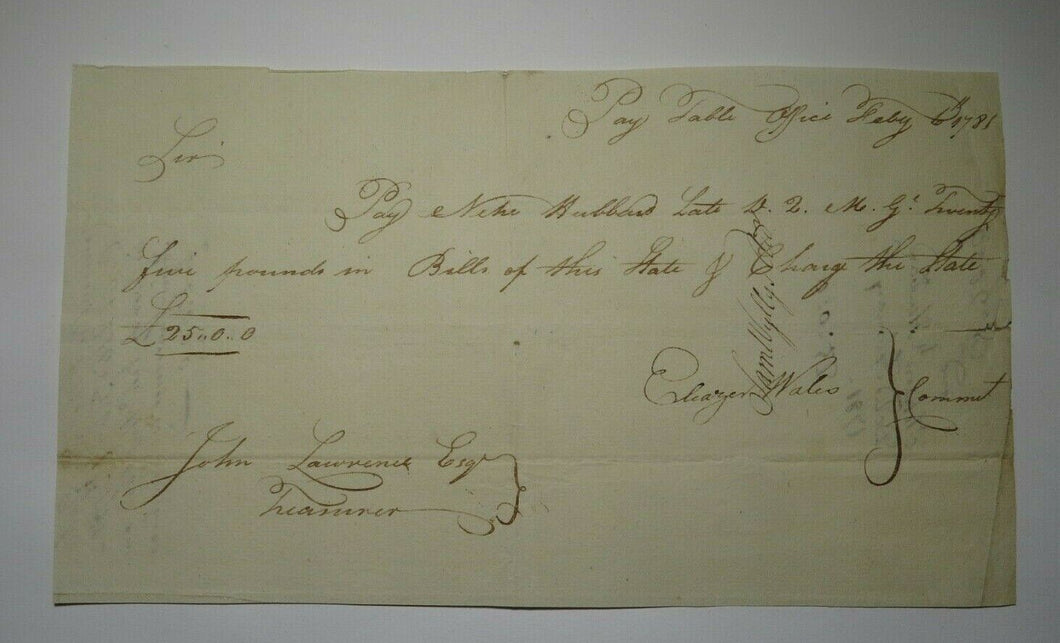 Pay Table Office Feby 6th 1781
Sir
Pay Nehe Hubbard Late D. Q. M. Gl. Twenty
five pounds in Bills of this State & Charge the State
£ 25,,0,,0
Saml Wyllys
Eleazer Wales } Commtt
John Lawrence Esqr
Treasurer